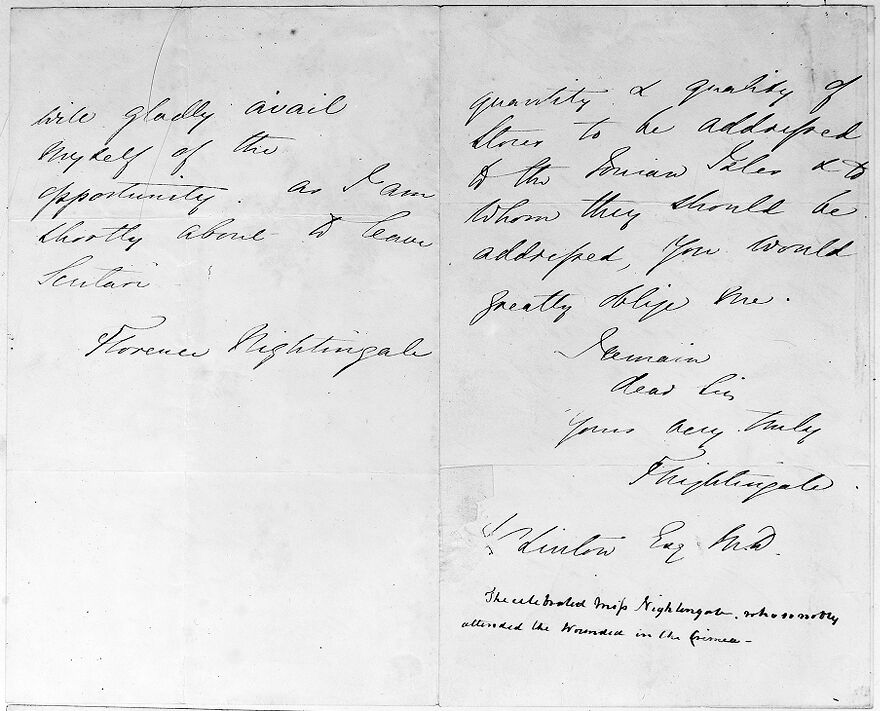 will gladly avail
myself of the
opportunity. as I am
shortly about to leave
Scutari
Florence Nightingale
quantity & quality of
stores to be addressed
to the Ionian Isles & to
whom they should be
addressed, you would
greatly oblige me.
I remain
dear Sir
Yours very truly
F Nightingale
Linton Esq M.D.
The celebrated Miss Nightingale, who so nobly
attended the Wounded in the Crimea —